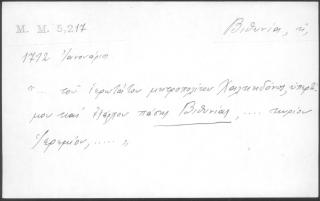 Μ. Μ. 5,217
Βιθυνία, ἡ
1792 Ἰανουάριο
"... τοῦ ἱερωτάτου μητροπολίτου Χαλκηδόνος, ὑπερτί-
μου καὶ ἐξάρχου πάσης Βιθυνίας, .... κυρίου
Ἱερεμίου, ..... "